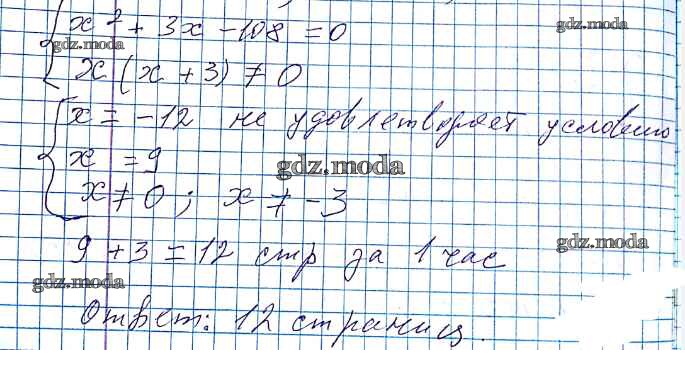 x² + 3x - 108 = 0
gdz.moda
gdz.moda
x (x + 3) ≠ 0
x = -12 не удовлетворяет условию
x = 9
gdz.moda
x ≠ 0 ; x ≠ -3
9 + 3 = 12 стр за 1 час
gdz.moda
gdz.moda
Ответ: 12 страниц.